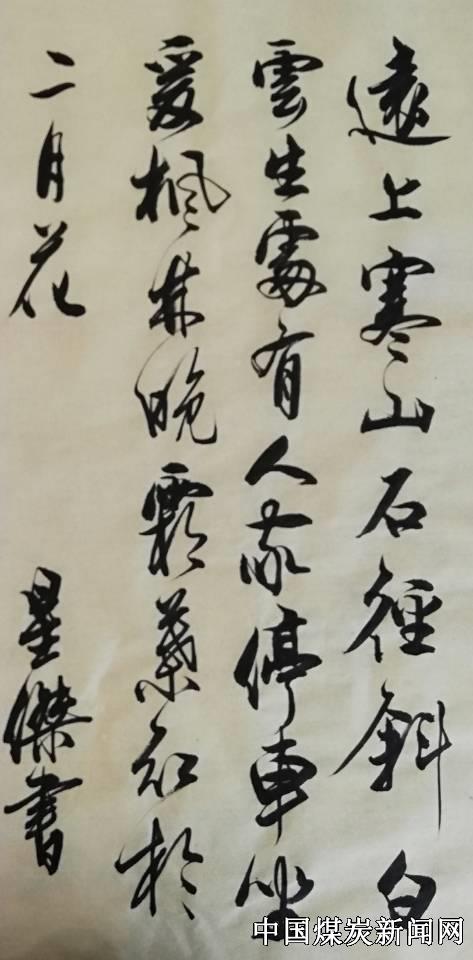 遠上寒山石徑斜白
雲生處有人家停車坐
爱楓林晚霜葉红於
二月花
星傑書
中国煤炭新闻网